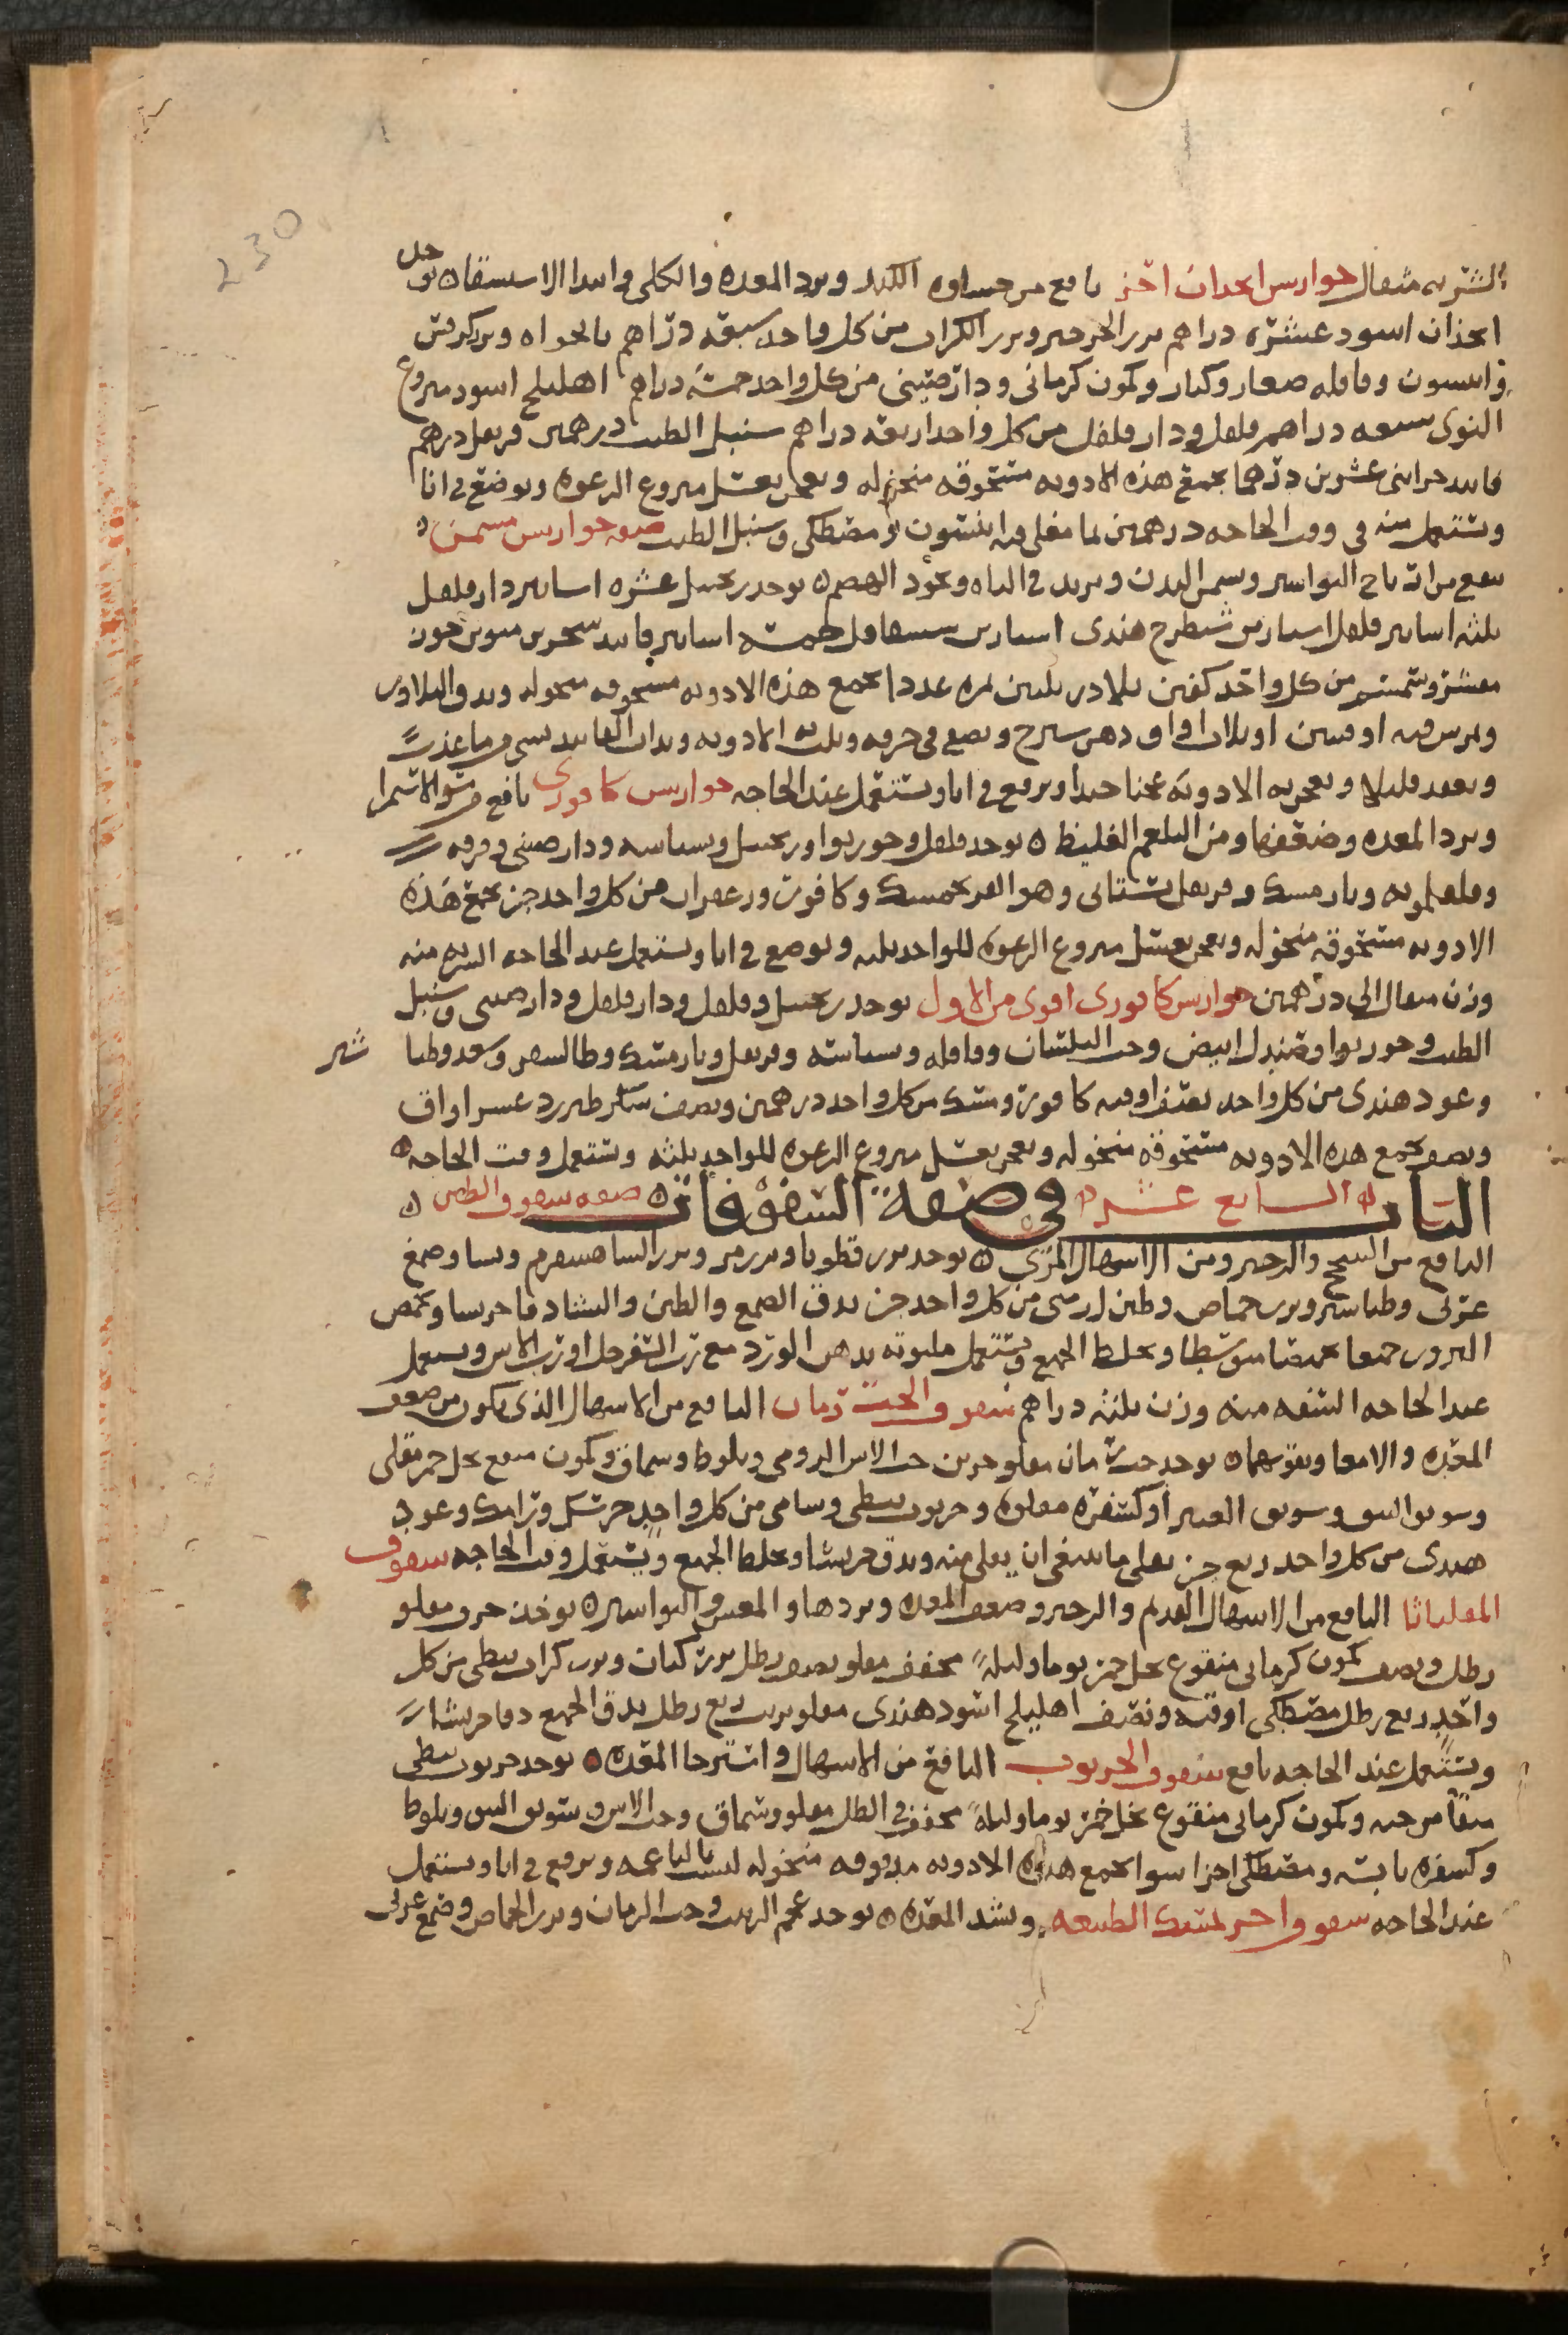 230
الشربه مثقال جوارش انجدان اخر نافع من جساوه الكبد وبرد المعده والكلى وابتدا الاستسقا يوخذ
انجذان اسود عشره دراهم بزر الجرجير وبزر الكراث من كل واحد سبعه دراهم نانخواه وبزر كرفس
وانيسون وقاقله صغار وكبار وكمون كرماني ودارصيني من كل واحد خمسه دراهم اهليلج اسود منزوع
النوى سبعه دراهم فلفل ودار فلفل من كل واحد اربعه دراهم سنبل الطيب درهمين قرنفل درهم
فانيد خزايني عشرين درهما تجمع هذه الادويه مسحوقه منخوله وتعجن بعسل منزوع الرغوه ويوضع في انا
ويستعمل منه في وقت الحاجه درهمين بما مغلي فيه انيسون ومصطكى وسنبل الطيب صفه جوارش مسمن
ينفع من ارياح البواسير ويسمن البدن ويزيد في الباه ويجود الهضم يوخذ زنجبيل عشره اساتير دار فلفل
ثلثه اساتير فلفل استارين شيطرج هندي استارين شقاقل خمسه اساتير فانيد سجزي منوين جوز
مقشر وسمسم من كل واحد كفين بلادر ثلثين ثمره عددا تجمع هذه الادويه مسحوقه منخوله ويدق البلادر
ويمرس فيه اوقيتين او ثلاث اواق دهن شيرج ويصفى في خرقه ويلت به الادويه ويذاب الفانيد بشي من ما عذب
ويعقد قليلا ويعجن به الادويه عجنا جيدا ويرفع في انا ويستعمل عند الحاجه جوارش كافوري نافع من سو الاستمرا
وبرد المعده وضعفها ومن البلغم الغليظ يوخذ فلفل وجوزبوا وزنجبيل وبسباسه ودارصيني وقرفه
وفلفلمويه ونارمسك وقرنفل بستاني وهو الفرنجمسك وكافور وزعفران من كل واحد جز تجمع هذه
الادويه مسحوقه منخوله وتعجن بعسل منزوع الرغوه للواحد ثلثه ويوضع في انا ويستعمل عند الحاجه الشربه منه
وزن مثقال الى درهمين جوارش كافوري اقوى من الاول يوخذ زنجبيل وفلفل ودار فلفل ودارصيني وسنبل
الطيب وجوزبوا وصندل ابيض وحب البلسان وقاقله وبسباسه وقرنفل ونارمشك وطاليسفر وسعد وطبا شير
وعود هندي من كل واحد نصف اوقيه كافور ومسك من كل واحد درهمين ونصف سكر طبرزد عشر اواق
ونصف تجمع هذه الادويه مسحوقه منخوله وتعجن بعسل منزوع الرغوه للواحد ثلثه وتستعمل وقت الحاجه
الباب السابع عشر في صفة السفوفات صفه سفوف الطين
النافع من السحج والزحير ومن الاسهال المري يوخذ بزر قطونا وبزر مر وبزر الشاهسفرم ونشا وصمغ
عربي وطباشير وبزر حماض وطين ارمني من كل واحد جز يدق الصمغ والطين والنشا دقا جريشا وتحمص
البزور جميعا تحميصا متوسطا ويخلط الجميع ويستعمل ملتوته بدهن الورد مع رب السفرجل او رب الاس ويستعمل
عند الحاجه السفه منه وزن ثلثه دراهم سفوف الحب رمان النافع من الاسهال الذي يكون من ضعف
المعده والامعا ويقويهما يوخذ حب رمان مقلو جزين حب الاس الرومي وبلوط وسماق وكمون منقع بخل خمر مقلي
وسويق النبق وسويق الغبيرا وكسفره مقلوه وخرنوب نبطي وشامي من كل واحد جز سك ورامك وعود
هندي من كل واحد ربع جز يقلى ما ينبغي ان يقلى منه ويدق جريشا ويخلط الجميع ويستعمل وقت الحاجه سفوف
المقلياثا النافع من الاسهال القديم والزحير وضعف المعده وبردها والمغس والبواسير يوخذ حرف مقلو
رطل ونصف كمون كرماني منقوع بخل خمر يوما وليلة مجفف مقلو نصف رطل بزر كتان وبزر كراث نبطي من كل
واحد ربع رطل مصطكى اوقيه ونصف اهليلج اسود هندي مقلو بزيت ربع رطل يدق الجميع دقا جريشا
ويستعمل عند الحاجه نافع سفوف الخرنوب النافع من الاسهال واسترخا المعده يوخذ خرنوب نبطي
منقا من حبه وكمون كرماني منقوع بخل خمر يوما وليلة مجفف في الظل مقلو وسماق وحب الاس وسويق النبق وبلوط
وكسفره يابسه ومصطكى اجزا سوا تجمع هذه الادويه مدقوقه منخوله ليست بالناعمه ويرفع في انا ويستعمل
عند الحاجه سفوف اخر لمسك الطبيعه ويشد المعده يوخذ عجم الزبيب وحب الرمان وبزر الحماض وصمغ عربي